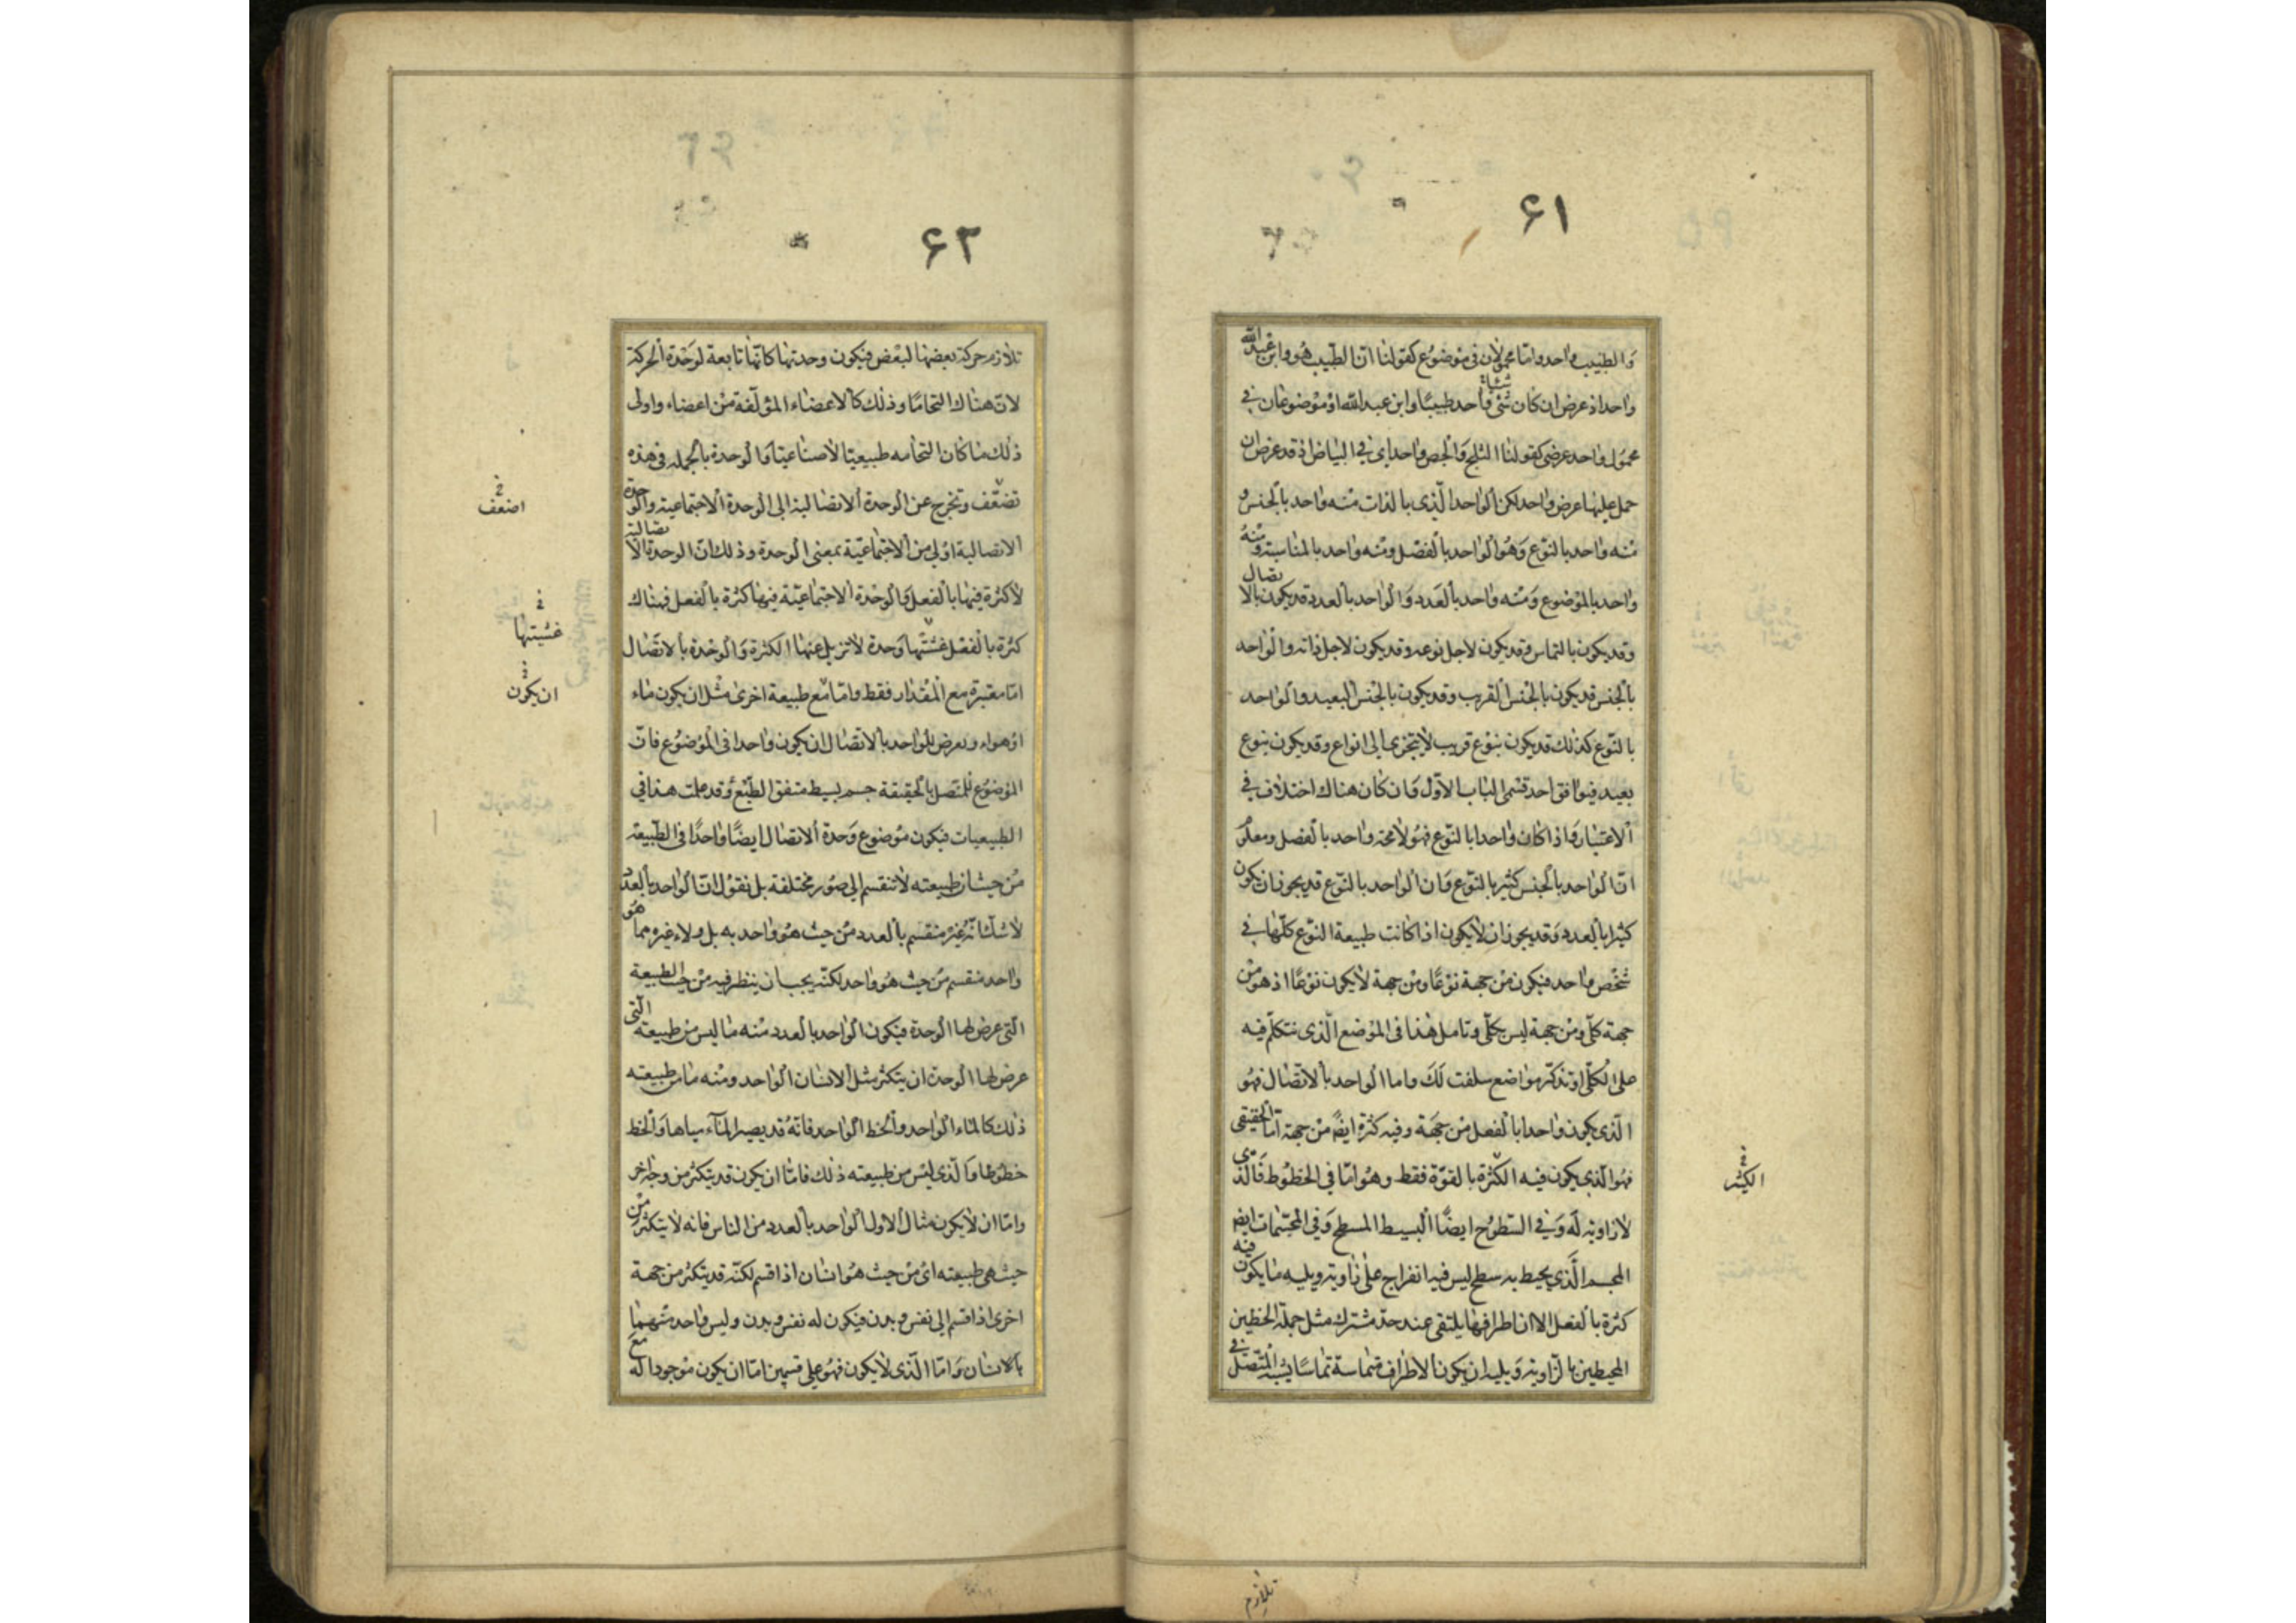 ۶۱
والطبيب واحد واما محمولان في موضوع كقولنا ان الطبيب هو وابن عبدالله
واحد اذ عرض ان كان شئ واحد طبيبا وابن عبد الله او موضوعان في
محمول واحد عرضى كقولنا الثلج والجص واحد اى في البياض اذ قد عرض ان
حمل عليها عرض واحد لكن الواحد الذى بالذات منه واحد بالجنس و
منه واحد بالنوع وهو الواحد بالفصل ومنه واحد بالمناسبة ومنه
واحد بالموضوع ومنه واحد بالعدد والواحد بالعدد قد يكون بالاتصال
وقد يكون بالتماس وقد يكون لاجل نوعه وقد يكون لاجل ذاته والواحد
بالجنس قد يكون بالجنس القريب وقد يكون بالجنس البعيد والواحد
بالنوع كذلك قد يكون بنوع قريب لا يتجزى الى انواع وقد يكون بنوع
بعيد فيوافق احد قسمى الباب الاول وان كان هناك اختلاف في
الاعتبار واذا كان واحدا بالنوع فهو لا محة واحد بالفصل ومعلوم
ان الواحد بالجنس كثير بالنوع وان الواحد بالنوع قد يجوز ان يكون
كثيرا بالعدد وقد يجوز ان لا يكون اذا كانت طبيعة النوع كلها في
شخص واحد فيكون من جهة نوعا ومن جهة لا يكون نوعا اذ هو من
جهة كلى ومن جهة ليس بكلى وتامل هذا فى الموضع الذى نتكلم فيه
على الكلى او تذكر مواضع سلفت لك واما الواحد بالاتصال فهو
الذى يكون واحدا بالفعل من جهة وفيه كثرة ايضً من جهة اما الحقيقى
فهو الذى يكون فيه الكثرة بالقوة فقط وهو اما في الخطوط فالذى
لا زاوية له وفي السطوح ايضا البسيط المسطح وفي المجسمات ايضً
المجسم الذى يحيط به سطح ليس فيه انفراج على زاوية ويليه ما يكون فيه
كثرة بالفعل الا ان اطرافها يلتقى عند حد مشترك مثل جملة الخطين
المحيطين بالزاوية ويليه ان يكون الاطراف متماسة تماسا يشبه المتصل في
الكثير
تلازم
۶۲
تلازم حركة بعضها لبعض فيكون وحدتها كانها تابعة لوحدة الحركة
لان هناك التحاما وذلك كالاعضاء المؤلفة من اعضاء واولى
ذلك ما كان التحامه طبيعيا لا صناعيا والوحدة بالجمله فى هذه
تضعف وتخرج عن الوحدة الاتصالية الى الوحدة الاجتماعية والوحدة
الاتصالية اولى من الاجتماعية بمعنى الوحدة وذلك ان الوحدة الاتصالية
لا كثرة فيها بالفعل والوحدة الاجتماعية فيها كثرة بالفعل فهناك
كثرة بالفعل غشتها وحدة لا تزيل عنها الكثرة والوحدة بالاتصال
اما معتبرة مع المقدار فقط واما مع طبيعة اخرى مثل ان يكون ماء
او هواء ويعرض للواحد بالاتصال ان يكون واحدا فى الموضوع فان
الموضوع للمتصل بالحقيقة جسم بسيط متفق الطبع وقد علمت هذا في
الطبيعيات فيكون موضوع وحدة الاتصال ايضا واحدا فى الطبيعة
من حيث ان طبيعته لا تنقسم الى صور مختلفة بل نقول ان الواحد بالعدد
لا شك انه غير منقسم بالعدد من حيث هو واحد به بل ولا غيره مما هو
واحد منقسم من حيث هو واحد لكنه يجب ان ينظر فيه من حيث الطبيعة
التى عرض لها الوحدة فيكون الواحد بالعدد منه ما ليس من طبيعته التى
عرض لها الوحدة ان يتكثر مثل الانسان الواحد ومنه ما من طبيعته
ذلك كالماء الواحد والخط الواحد فانه قد يصير الماء مياها والخط
خطوطا والذى ليس من طبيعته ذلك فاما ان يكون قد يتكثر من وجه اخر
واما ان لا يكون مثال الاول الواحد بالعدد من الناس فانه لا يتكثر من
حيث هى طبيعته اى من حيث هو انسان اذا قسم لكنه قد يتكثر من جهة
اخرى اذا قسم الى نفس وبدن فيكون له نفس وبدن وليس واحد منهما
بالانسان واما الذى لا يكون فهو على قسمين اما ان يكون موجودا له مع
اضعف
غشيتها
ان يكون